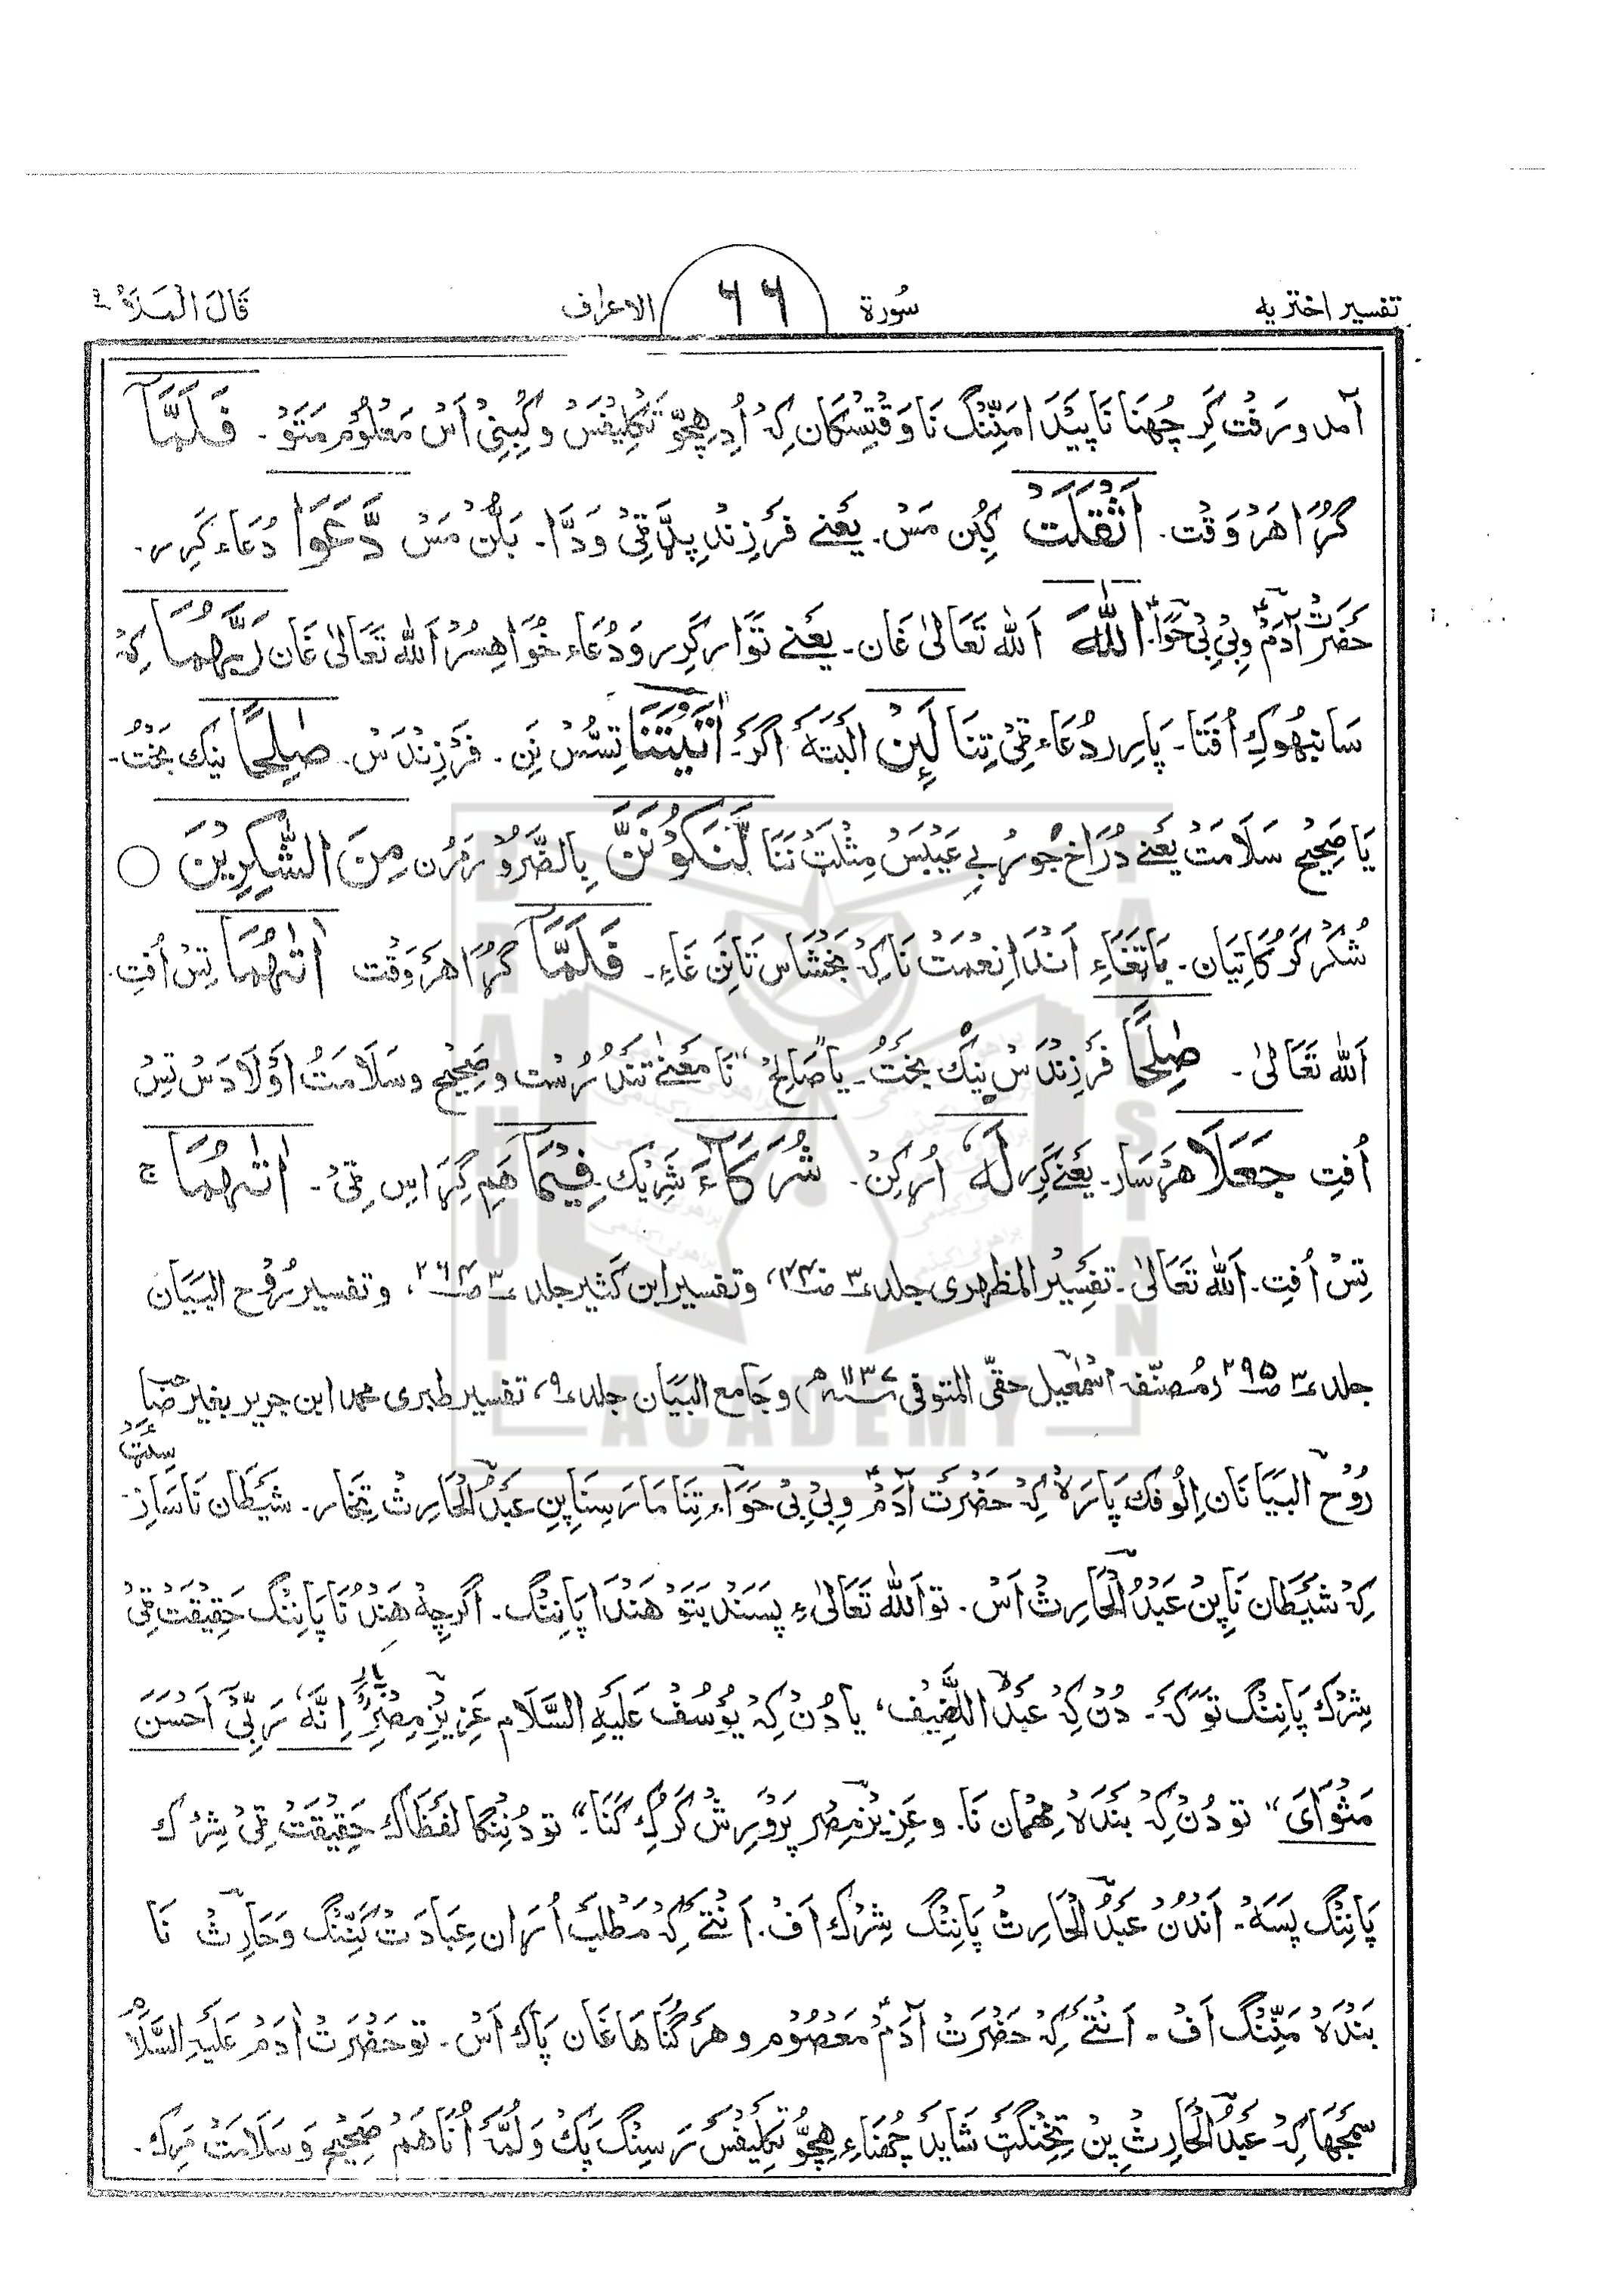 تفسیر اختریه ۶۶ سُورة الاعراف قَالَ الْمَلَاُ ۹
آمد و رَفْت کَرِ چُهنَا نَا پَیْدَا مَنِّنْگ نَا وَقْتِسْکَان کِہ اُدِ هِچّو تَکْلِیْفَسْ و کُبِینِیْ اَسْ مَعْلُوْم مَتَوْ۔ فَلَمَّآ
گُڑَا هَرْ وَقْت۔ اَثْقَلَتْ کُبِن مَسْ۔ یَعْنے فَرْزِنْد پِلَّہ قِیْ وَدَّا۔ بَلُنْ مَسْ دَّعَوَا دُعَاء کَرِر۔
حَضْرَتْ آدَمْؑ وبِیْ بِیْ حَوَّا۔ اللّٰهَ اَللّٰه تَعَالیٰ غَان۔ یَعْنے تَوَّار کَرِر وَ دُعَاء خُوَاهِسُرْ اَللّٰه تَعَالیٰ غَان رَبَّهُمَا کِہ
سَانِبْهُوکِ اُفْتَا۔ پَارِر دُعَاء قِیْ تِنَا لَئِنْ اَلْبَتَّہ اَگَرْ۔ اٰتَیْتَنَا تِسُّسْ نَنِ۔ فَرْزِنْدَسْ۔ صَالِحًا نیک بَخْتُ۔
یَا صَحِیْح سَلَامَتْ یَعْنے دُرَاخ جوڑ بے عَیْبَسْ مِثْلَتْ نَنَا لَّنَکُوْنَنَّ بِالضَّرُوْر مَرُن مِنَ الشّٰکِرِیْنَ ○
شُکْر کَرُوکَاتِیَان۔ بَاتَغَاءِ اَنْدَا نِعْمَتْ نَا کِہ بَخْشَاس تَانَنْ غَاءِ۔ فَلَمَّآ گُڑَا هَرْوَقْت اٰتٰهُمَا تِسْ اُفْتِ۔
اَللّٰه تَعَالیٰ۔ صَالِحًا فَرْزِنْدَسْ نِیْک بَخْتُ۔ یا "صَالِحْ" نَا مَعْنے تَنْدُرُسْت و صَحِیْح و سَلَامَتُ اَوْلَادَسْ تِسْ
اُفْتِ جَعَلَا هَرْسَار۔ یَعْنے کَرِر لَهٗ اُرکِنْ۔ شُرَكَآءَ شَرِیْک۔ فِیْمَآ هَمِ گِڑَاس قِیْ۔ اٰتٰهُمَا ج
تِسْ اُفْتِ۔ اَللّٰه تَعَالیٰ۔ تفسیر المظہری جلد ۳ ص، وتفسیر ابن کثیر جلد ۳ ص، و تفسیر رُوْح البَیَان
جلد ۳ ص۲۹۵ (مُصنّفہ اسْمٰعِیل حقّی المتوفی ۱۱۳۷ھ) و جَامع البَیَان جلد ۹، تفسیر طبری محمد ابن جریر بغیر رضا
رُوْح البَیَا نَان اِلُّوفک پَارَہ کِہ حَضْرَت آدَمْؑ وبِیْ بِیْ حَوَّاء تِنَا مَار سِنَا پِنِ عَبْدُ الْحَارِثْ تِخَّار۔ شَیْطَان نَا سَازِ سِتَتْ
کِہ شَیْطَان نَا پِنْ عَبْدُ الْحَارِثْ اَسْ۔ تو اَللّٰه تَعَالیٰ ءِ پَسَنْد بَتَوْ هَنْدَا پَانِنْگ۔ اَگَرْچِہ هَنْدُنَا پَانِنْگ حَقِیْقَتْ قِیْ
شِرْک پَانِنْگ تَوَّکَہ۔ دُنْ کِہ عَبْدُ الضَّیْف، یا دُنْ کِہ یُوْسُفْ عَلَیْهِ السَّلَام عَزِیْزِ مِصْر پَار "اِنَّهٗ رَبِّیْٓ اَحْسَنَ
مَثْوَایَ" تو دُنْ کِہ بَنْدَہ مِهْمَان نَا۔ و عَزِیْزِ مِصْر پَرْوَرِشْ کَرُکِ کَنَا۔" تو دُنِنْگَا لَفْظَاک حَقِیْقَتْ قِیْ شِرْک
پَانِنْگ پَسَہ۔ اَنْدُنْ عَبْدُ الْحَارِثْ پَانِنْگ شِرْک اَفْ۔ اَنْتَے کِہ مَطْلَبْ اُرَان عِبَادَتْ کَنِّنْگ وَحَارِثْ نَا
بَنْدَہ مَنِّنْگ اَفْ۔ اَنْتَے کِہ حَضْرَتْ آدَمْؑ مَعْصُوْم و هَرْ گُنَا هَاغَان پَاک اَسْ۔ تو حَضْرَتْ اٰدَمْ عَلَیْهِ السَّلَامْ
سَمْجَهَا کِہ عَبْدُ الْحَارِثْ پِنْ تِخِنْگَتْ شَایَدْ چُهنَاءِ هِچّو تَکْلِیْفَسْ رَسِنْگ پَکْ وَ لُمَّہ اُنَا هَمْ صَحِیْح وَ سَلَامَتْ مَرِک۔
BRAHUI ACADEMY PAKISTAN